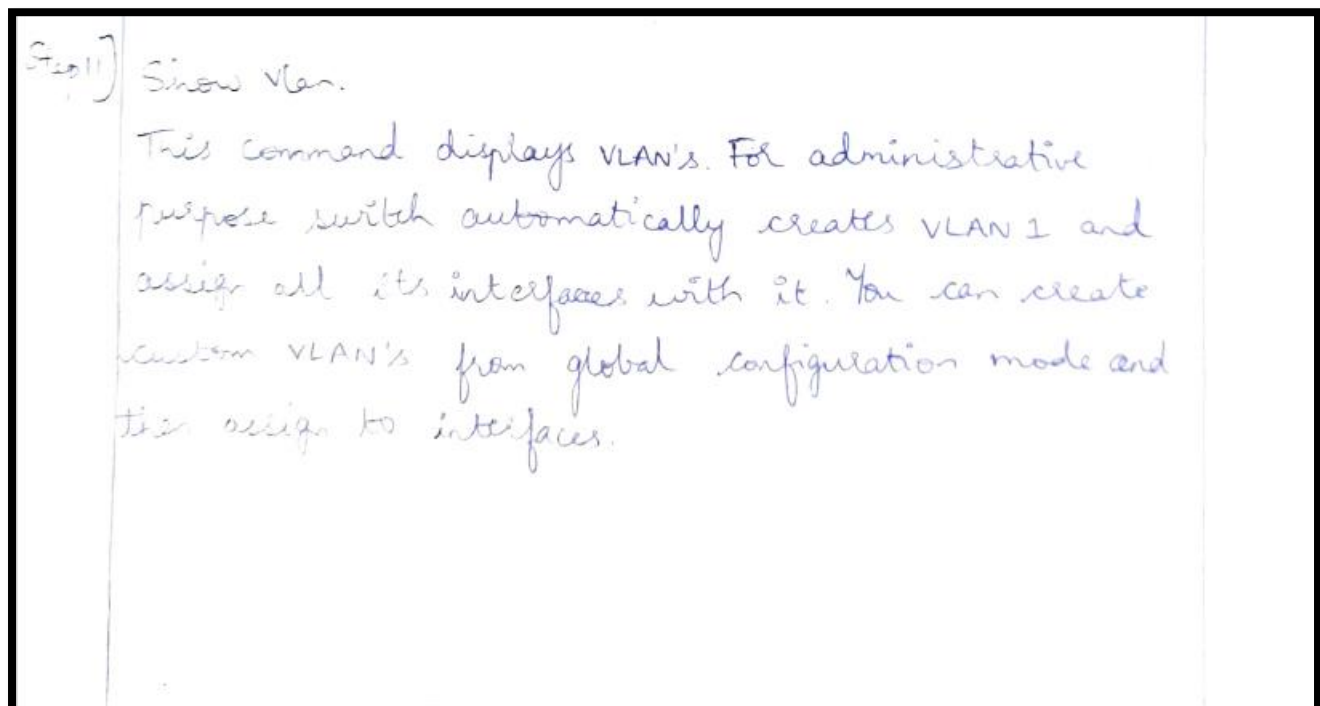 Step 11] Show vlan.
This command displays VLAN's. For administrative
purpose switch automatically creates VLAN 1 and
assign all its interfaces with it. You can create
custom VLAN's from global configuration mode and
then assign to interfaces.